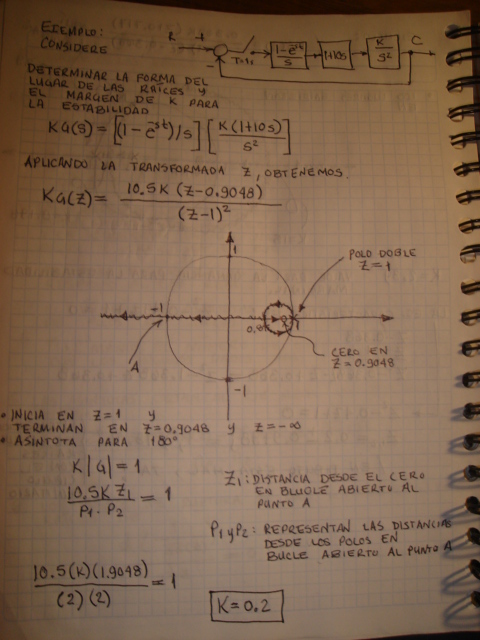 EJEMPLO:
CONSIDERE
R + - T=1s 1-e^-st/s 1+10s K/s² C
DETERMINAR LA FORMA DEL
LUGAR DE LAS RAÍCES Y
EL MARGEN DE K PARA
LA ESTABILIDAD
KG(s) = [(1-e^-st)/s] [K(1+10s)/s²]
APLICANDO LA TRANSFORMADA Z, OBTENEMOS.
KG(z) = 10.5K (z-0.9048)/(z-1)²
1
POLO DOBLE
z=1
-1
0,8
A
CERO EN
z=0.9048
-1
• INICIA EN z=1 Y
TERMINAN EN z=0,9048 Y z=-∞
• ASÍNTOTA PARA 180°
K|G|=1
10.5K Z1/P1·P2 = 1
Z1: DISTANCIA DESDE EL CERO
EN BLUCLE ABIERTO AL
PUNTO A
P1 y P2: REPRESENTAN LAS DISTANCIAS
DESDE LOS POLOS EN
BUCLE ABIERTO AL PUNTO A
10.5(K)(1.9048)/(2)(2) = 1
K=0.2